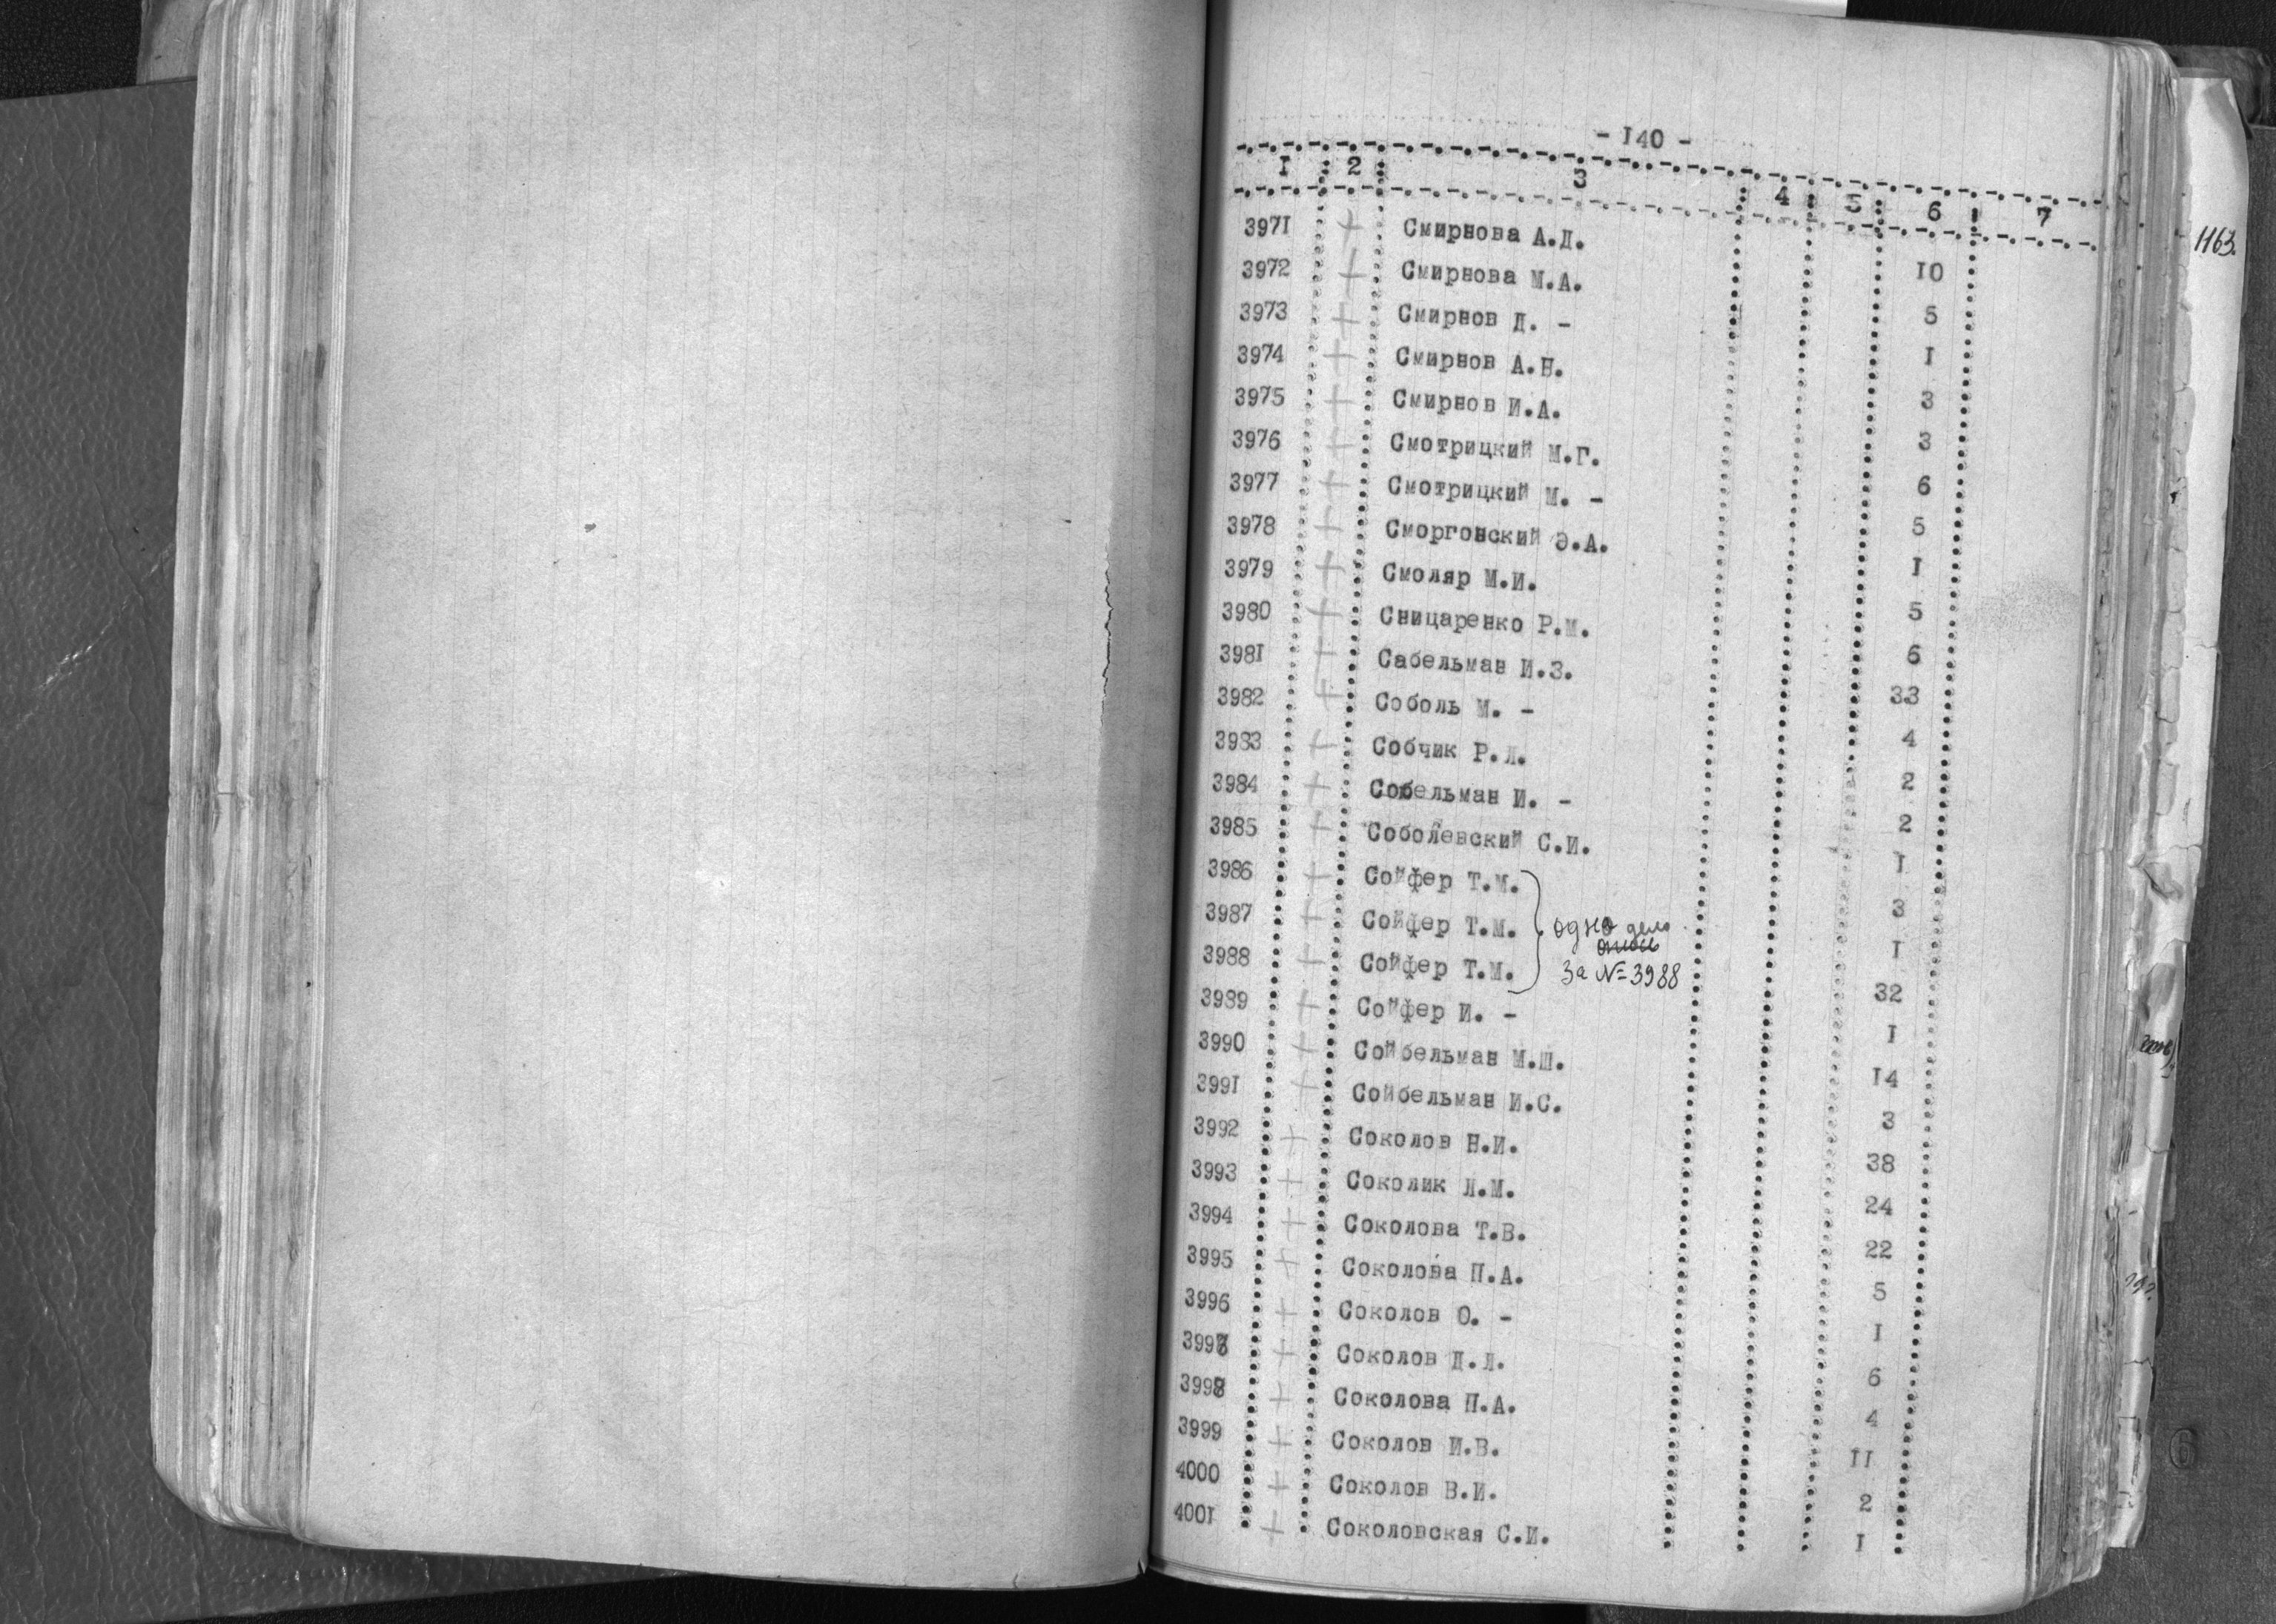 - I40 -
I 2 3 4 5 6 7
1163.
397I + Смирнова А.Д. I0
3972 + Смирнова М.А. 5
3973 + Смирнов Д. - I
3974 + Смирнов А.Н. 3
3975 + Смирнов И.А. 3
3976 + Смотрицкий М.Г. 6
3977 + Смотрицкий М. - 5
3978 + Сморгонский Э.А. I
3979 + Смоляр М.И. 5
3980 + Сницаренко Р.М. 6
398I + Сабельман И.З. 33
3982 + Соболь М. - 4
3983 + Собчик Р.Л. 2
3984 + Собельман И. - 2
3985 + Соболевский С.И. I
3986 + Сойфер Т.М. 3
3987 + Сойфер Т.М. I
одно дело
3988 + Сойфер Т.М. 32
за №3988
3989 + Сойфер И. - I
3990 + Сойбельман М.Ш. I4
399I + Сойбельман И.С. 3
3992 + Соколов Н.И. 38
3993 + Соколик Л.М. 24
3994 + Соколова Т.В. 22
3995 + Соколова П.А. 5
3996 + Соколов О. - I
3997 + Соколов Д.Л. 6
3998 + Соколова П.А. 4
3999 + Соколов И.В. II
4000 + Соколов В.И. 2
400I + Соколовская С.И. I